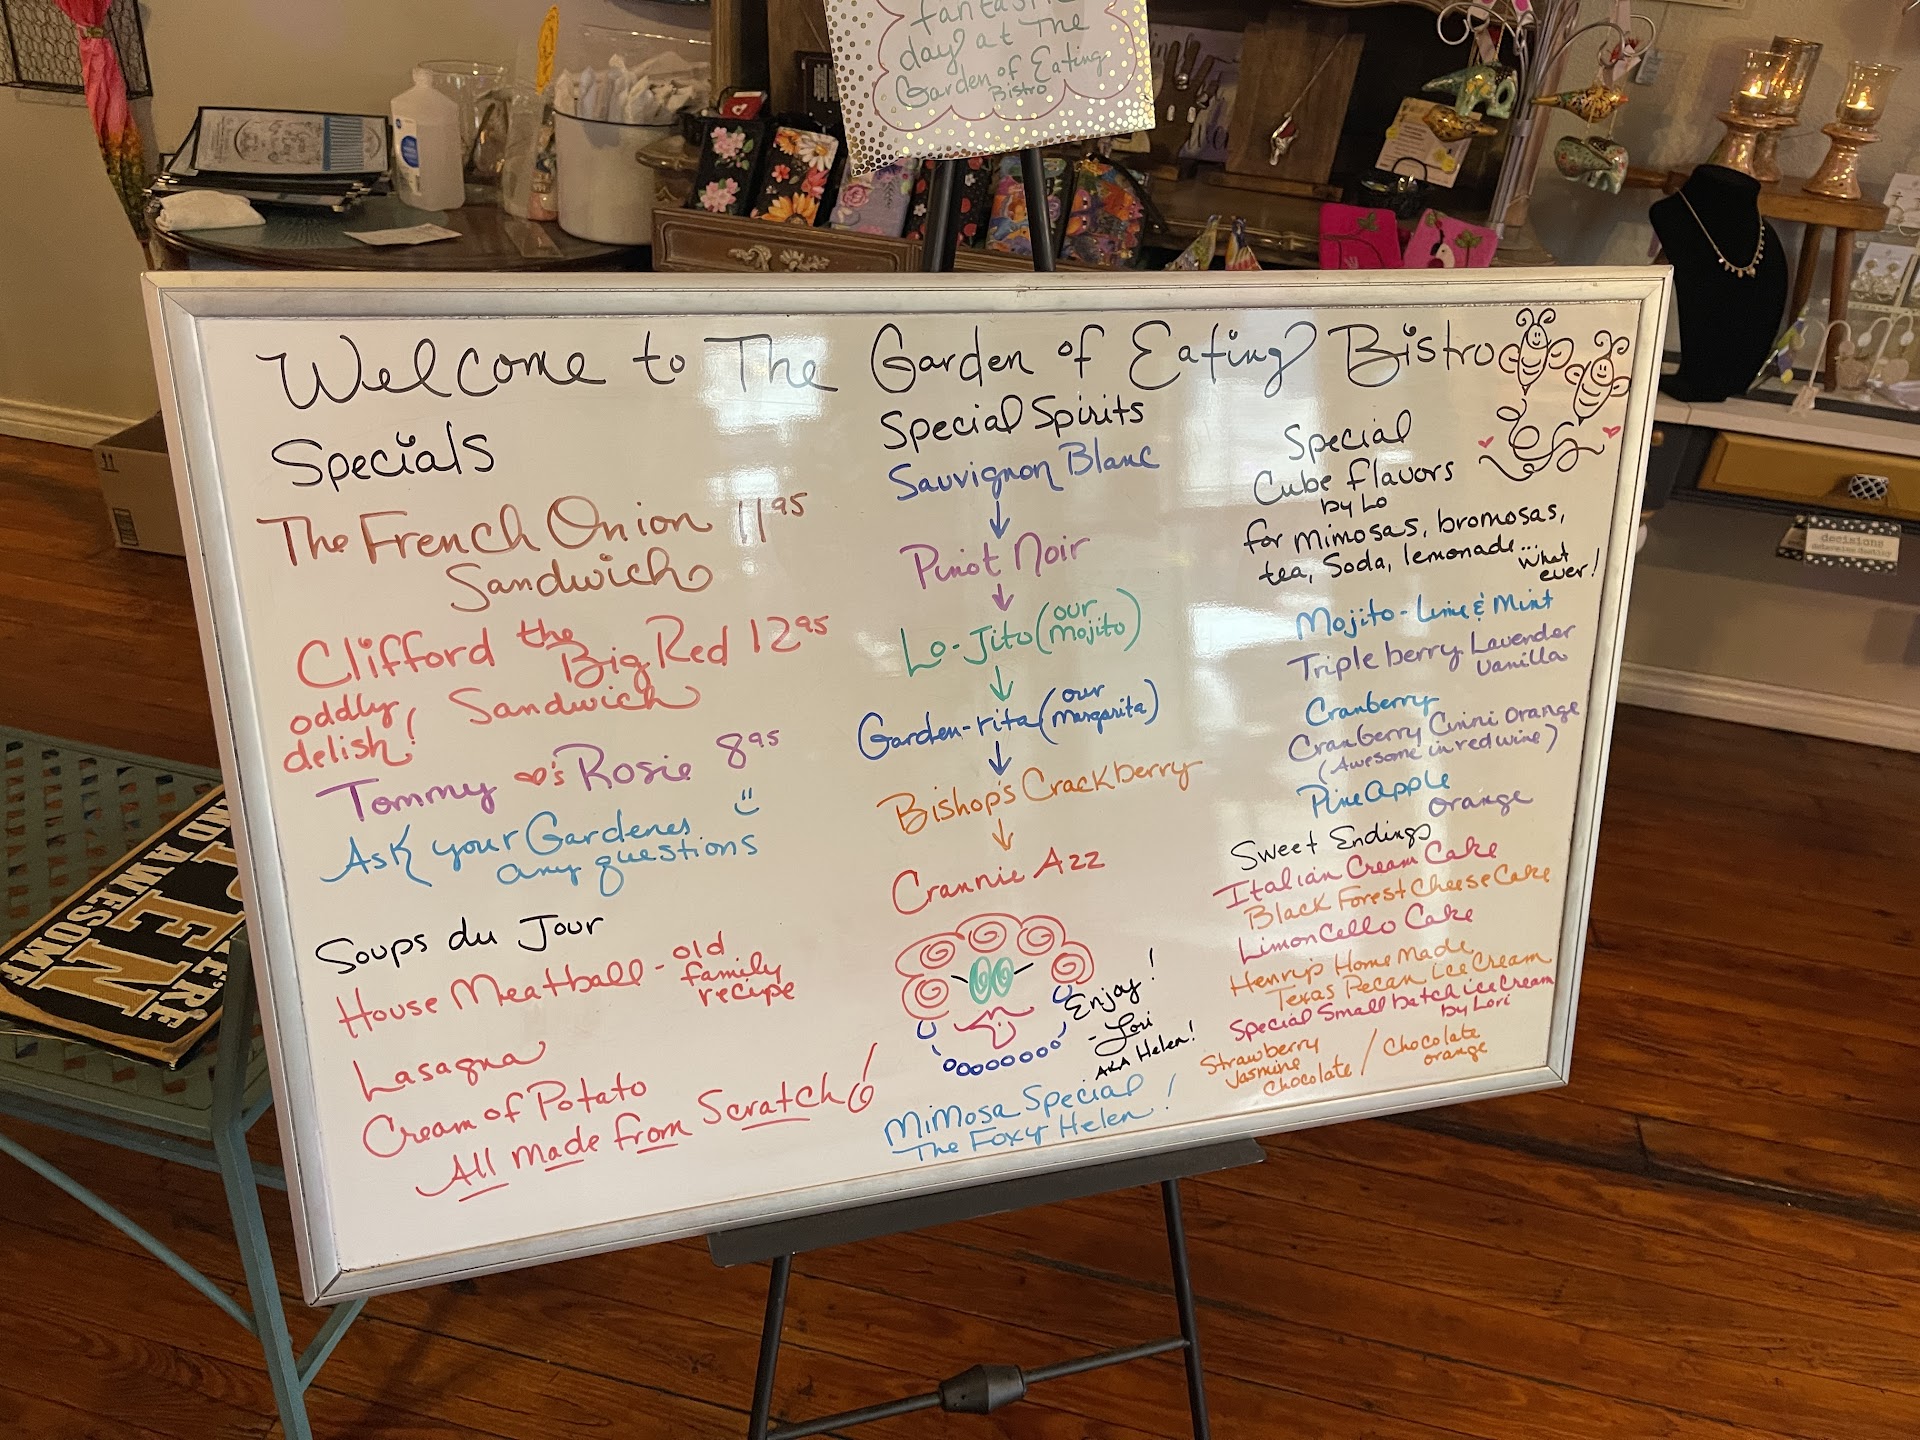 fantastic
day at The
Garden of Eating
Bistro
Welcome to The Garden of Eating Bistro
Specials
The French Onion 11 95
Sandwich
Clifford the Big Red 12 95
oddly delish! Sandwich
Tommy ♥'s Rosie 8 95
Ask your Gardenes
any questions
Soups du Jour
House Meatball - old
family
recipe
Lasagna
Cream of Potato
All made from Scratch!
Special Spirits
Sauvignon Blanc
↓
Pinot Noir
↓
Lo-Jito (our mojito)
↓
Garden-rita (our margarita)
↓
Bishop's Crackberry
↓
Crannie Azz
Enjoy!
- Lori
AKA Helen!
MiMosa Special
The Foxy Helen!
Special
Cube flavors
by Lo
for mimosas, bromosas,
tea, Soda, lemonade... what
ever!
Mojito - Lime & Mint
Triple berry Lavender
Vanilla
Cranberry
Cranberry Cinni Orange
(Awesome in red wine)
PineApple
Orange
Sweet Endings
Italian Cream Cake
Black Forest CheeseCake
LimonCello Cake
Home Made
Texas Pecan ice Cream
Special Small batch ice Cream
by Lori
Strawberry
Jasmine
Chocolate / Chocolate
orange
decisions
determine destiny
OPEN
WE'RE
AND AWESOME